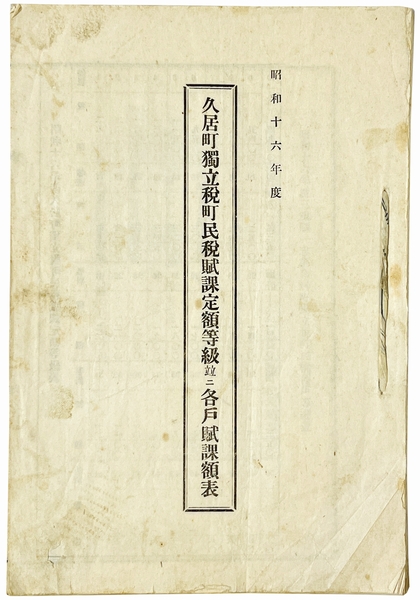 昭和十六年度
久居町獨立稅町民稅賦課定額等級竝ニ各戶賦課額表